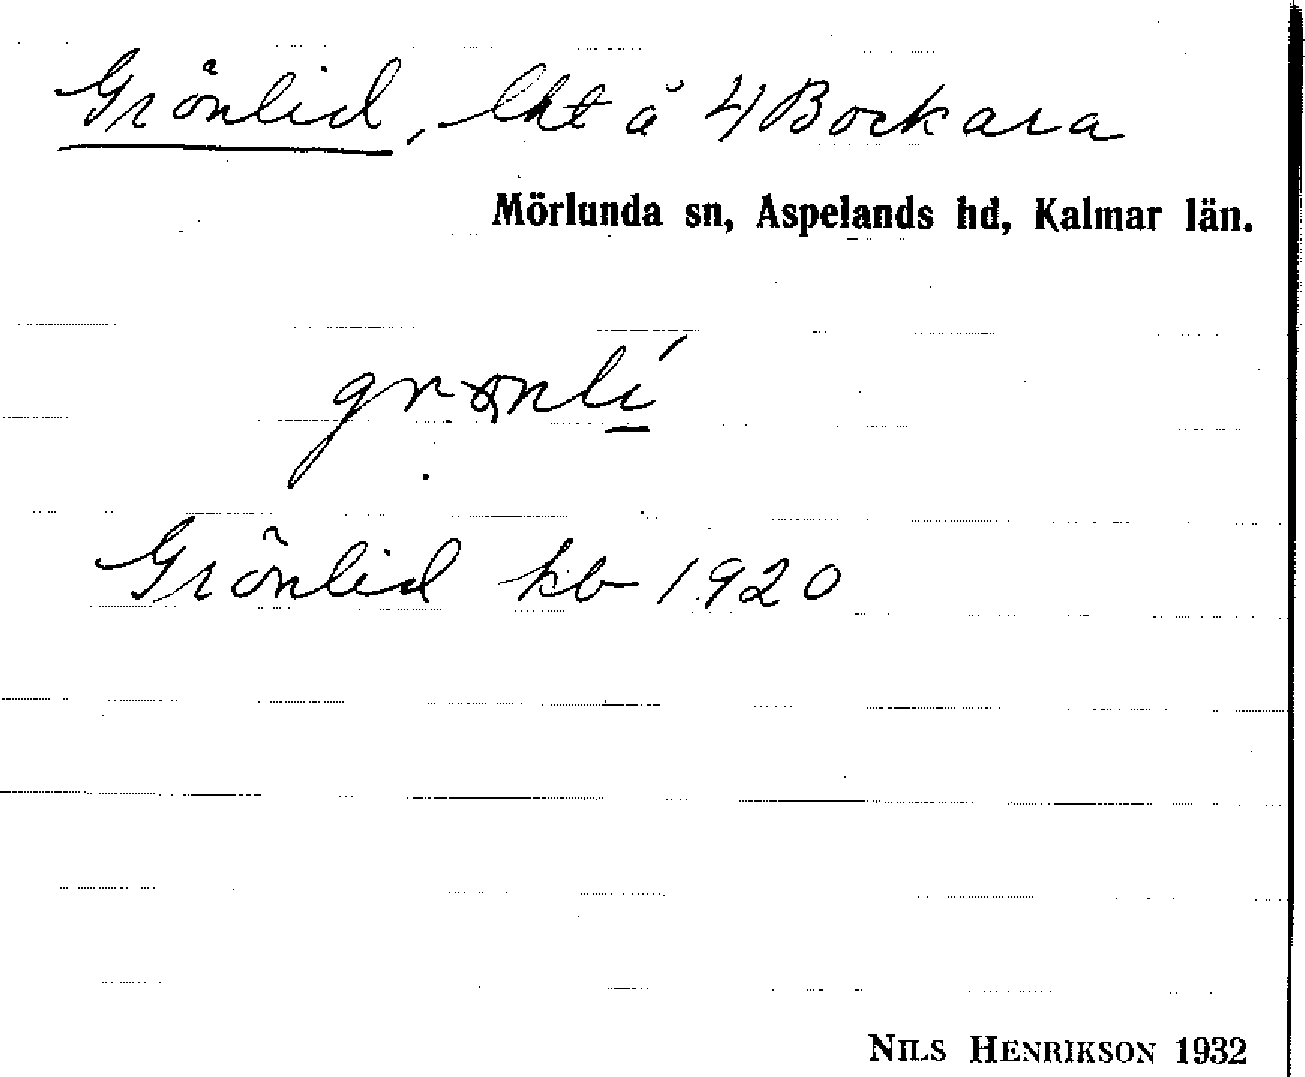 Grönlid, lht å 4 Bockara
Mörlunda sn, Aspelands hd, Kalmar län.
Grönlid kb 1920
NILS HENRIKSON 1932